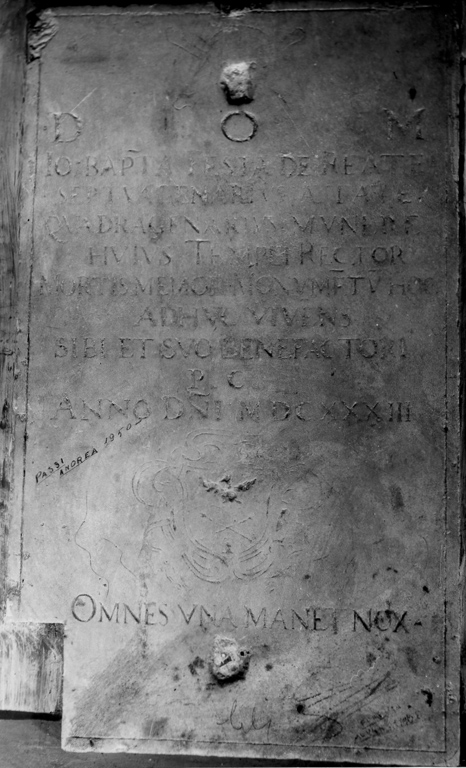 D O M
IO · BAPTA TESTA DE REATE
SEPTVAGENARIVS AETATE
QVADRAGENARIVS MVNERE
HVIVS TEMPLI RECTOR
MORTIS MEMOR MONVMETV HOC
ADHVC VIVENS
SIBI ET SVO BENEFACTORI
P C
ANNO DNI MDCXXXIII
PASSI
ANDREA 1950
OMNES VNA MANET NOX